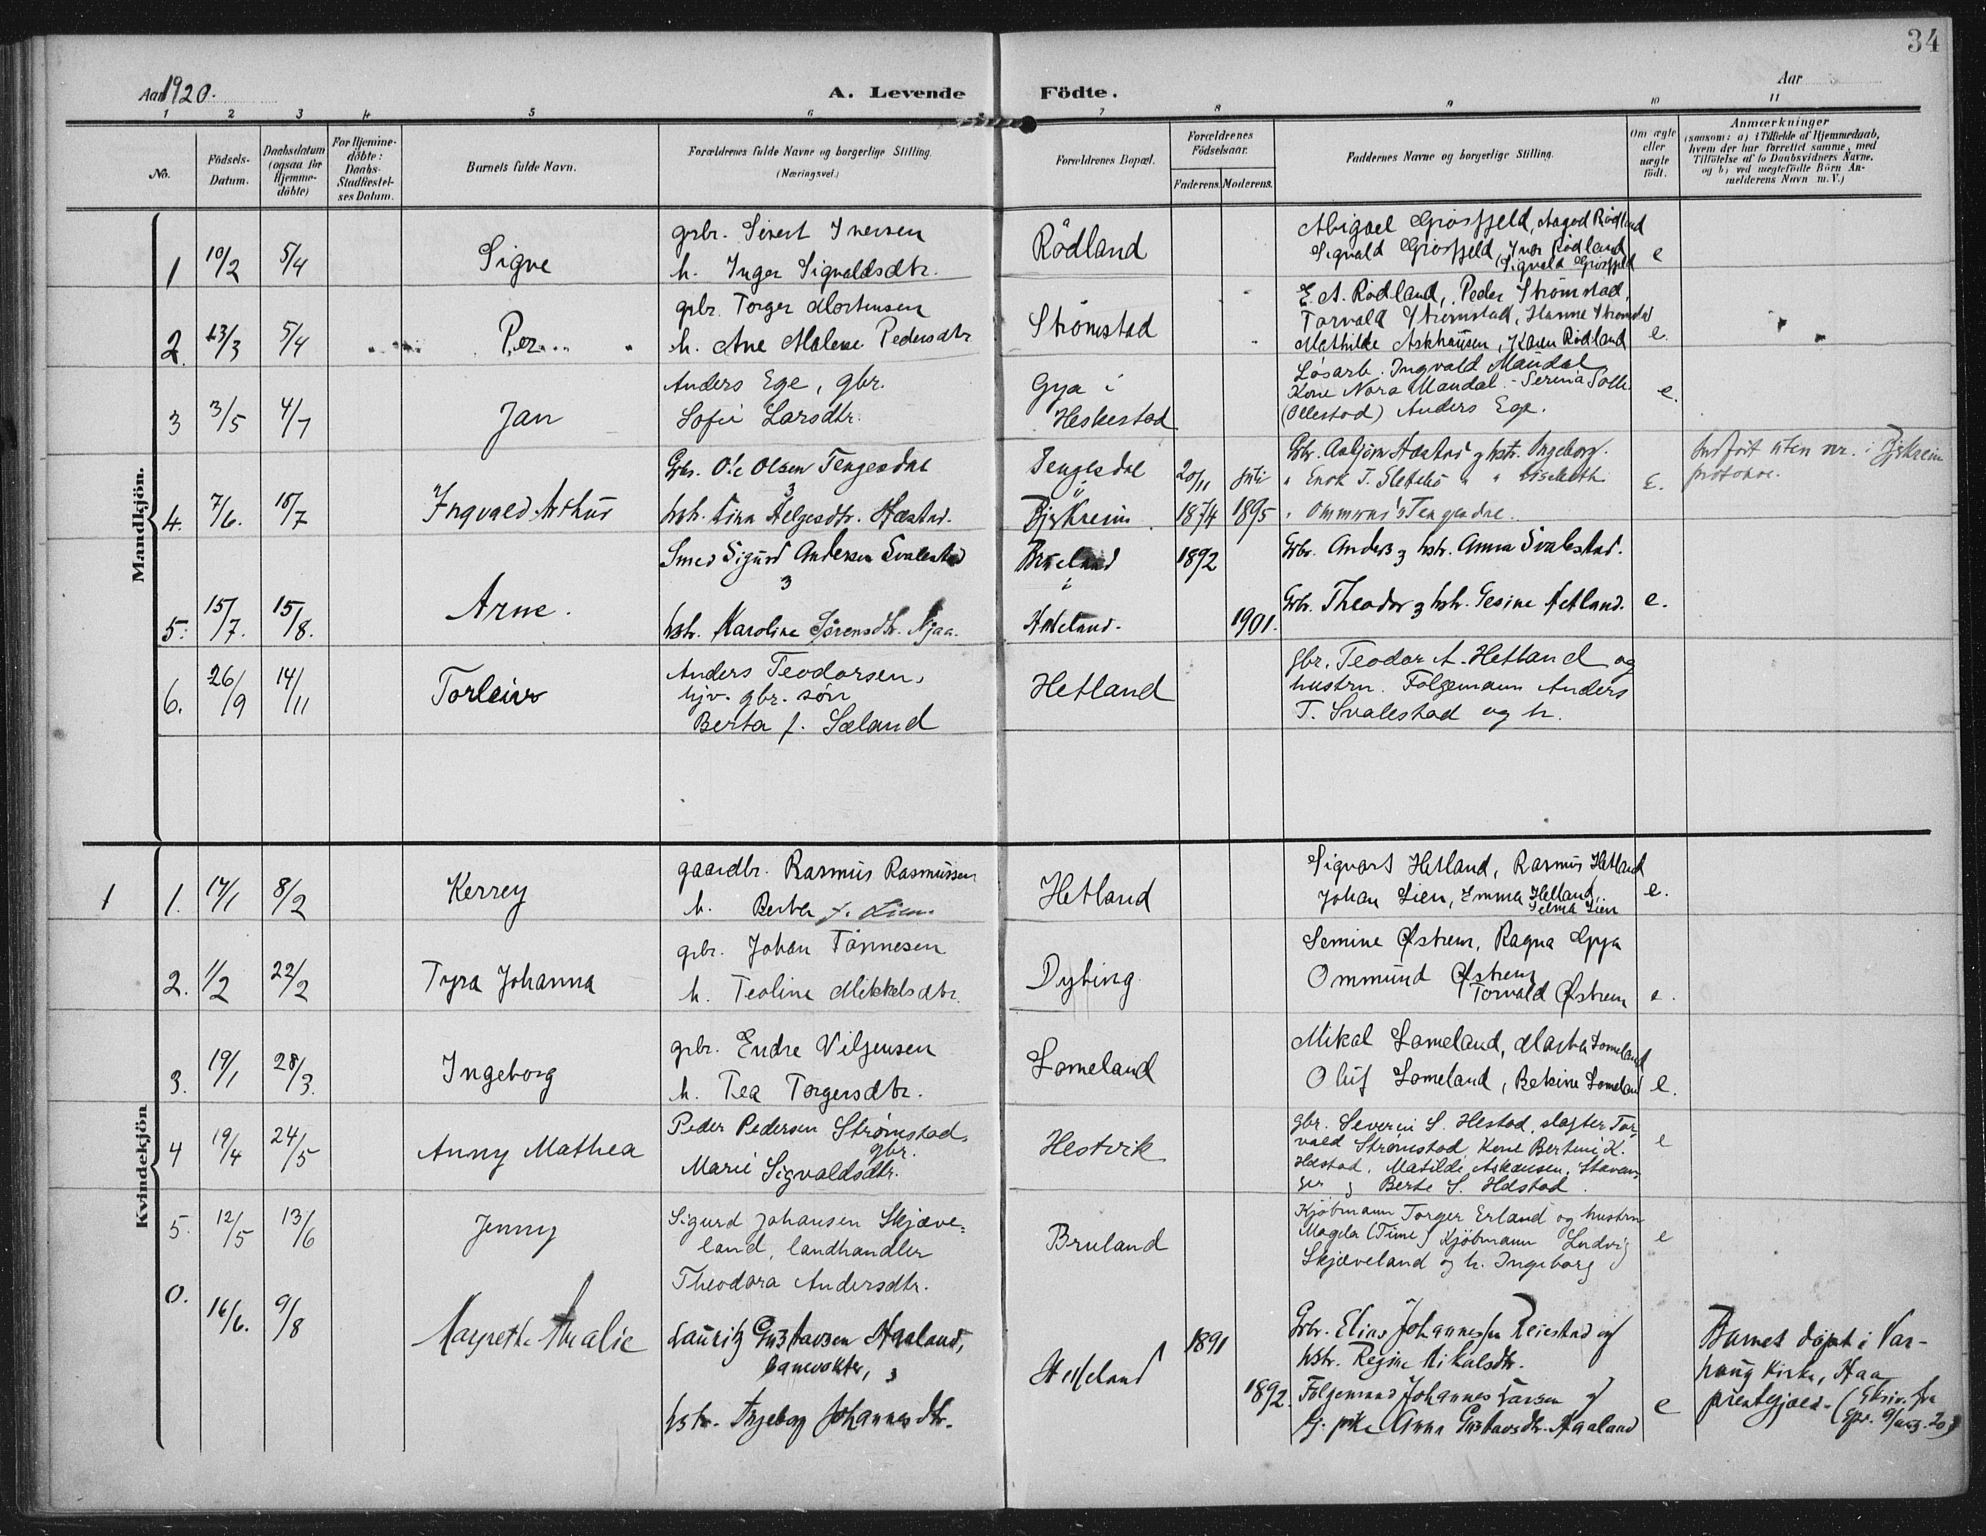 34
Aar 1920.
A. Levende Födte.
Aar
1 2 3 4 5 6 7 8 9 10 11
No.
Födsels-Datum.
Daabsdatum (ogsaa for Hjemme-döbte)
For Hjemme-döbte: Daabs-Stadfæstel-ses Datum.
Barnets fulde Navn.
Forældrenes fulde Navne og borgerlige Stilling.
(Næringsvei.)
Forældrenes Bopæl.
Forældrenes Födselsaar.
Faderens. Moderens.
Faddernes Navne og borgerlige Stilling.
Om ægte eller uægte födt.
Anmærkninger
(saasom: a) i Tilfælde af Hjemmedaab, hvem der har forrettet samme, med Tilföielse af to Daabsvidners Navne, og b) ved uægtefödte Börn An-melderens Navn m. V.)
Mandkjön.
1 10/2 5/4 Sigve
gbr. Sivert Iversen
h. Inger Sigvaldsdtr.
Rödland
Abigael Grøsfjeld, Aagod Rödland
Sigvald Grøsfjeld, Iver Rödland
Sigvald Grøsfjeld
e
2. 23/3 5/4 Per
gbr. Torger Mortensen
h. Ane Malene Pedersdtr.
Strömstad
E. A. Rödland, Peder Strömstad,
Torvald Strömstad, Hanne Strömstad
Mathilde Askhausen, Karen Rödland
e.
3 3/5 4/7 Jan
Anders Ege, gbr.
Sofie Larsdtr.
Gya i
Heskestad
Løsarb. Ingvald Maudal,
Kone Nora Maudal - Serina
(Ollestad) Anders Ege.
e.
4. 7/6. 18/7 Ingvald Arthur
Gbr. Ole Olsen Tengesdal
og
hstr. Lina Helgesdtr. Hæstad.
Tengesdal
i
Bjerkreim.
20/11 1874
juli 1895
Gbr. Asbjörn Hæstad og hstr. Ingeborg.
" Enok T. Slettebø " " Lisebeth
" Ommund Tengesdal.
e.
Innfört uten nr. i Bjerkreim
protokol.
5. 15/7. 15/8. Arne.
Smed Sigurd Andersen Svalestad
og
hstr. Karoline Sörensdtr. Njaa.
Bruland
i
Helleland.
1892
1901.
Gbr. Anders og hstr. Anna Svalestad.
Gbr. Theodor og hstr. Gesine Hetland.
e.
6. 26/9 14/11 Torleiv
Anders Teodorsen,
hjv. gbr. søn
Berta f. Sæland
Hetland
gbr. Teodor A. Hetland og
hustru. Folgemann Anders
T. Svalestad og h.
Kvindekjön
1
1. 14/1 8/2 Kerrey
gaardbr. Rasmus Rasmussen
h. Berta f. Lien.
Hetland
Sigvart Hetland, Rasmus Hetland
Johan Lien, Emma Hetland,
Telma Lien
e.
2. 1/2 22/2 Tyra Johanna
gbr. Johan Tönnesen
h. Teoline Mikkelsdtr.
Dybing
Semine Østrem, Ragna Gya
Ommund Østrem
Torvald Østrem
e.
3. 19/1 28/3. Ingeborg
gbr. Endre Viljensen
h. Tea Torgersdtr.
Lomeland
Mikal Lomeland, Marta Lomeland
Oluf Lomeland, Betsine Lomeland
e.
4 19/4 24/5 Anny Mathea
Peder Pedersen Strømstad,
gbr.
Marie Sigvaldsdtr.
Hestvik
gbr. Severin S. Hestad, slagter Tor-
vald Strømstad, Kone Bertine K.
Hæstad, Matilde Askausen, Stavan-
ger og Berte S. Hæstad.
e
5. 12/5 13/6 Jenny
Sigurd Johansen Skjæve-
land, landhandler
Theodora Andersdtr.
Bruland
Kjöbmann Torger Erland og hustru
Magda (Time) Kjöbmann Ludvig
Skjæveland og h. Ingeborg
e
0. 16/6. 9/8 Margrethe Amalie
Lauritz Gustavsen Aaland,
banevokter, og
hstr. Ingeborg Johannesdtr.
Helleland
1891
1892.
Gbr. Elias Johannessen Reiestad og
hstr. Regine Mikalsdtr.
Folgemand Johannes Larsen og
G. pike Anna Gustavsdtr. Aaland
e
Barnet döpt i Var-
haug Kirke, Haa
prestegjeld. (Skriv. fra
Spr. 9/aug. 20)